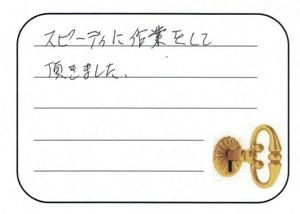 スピーディに作業をして
頂きました、